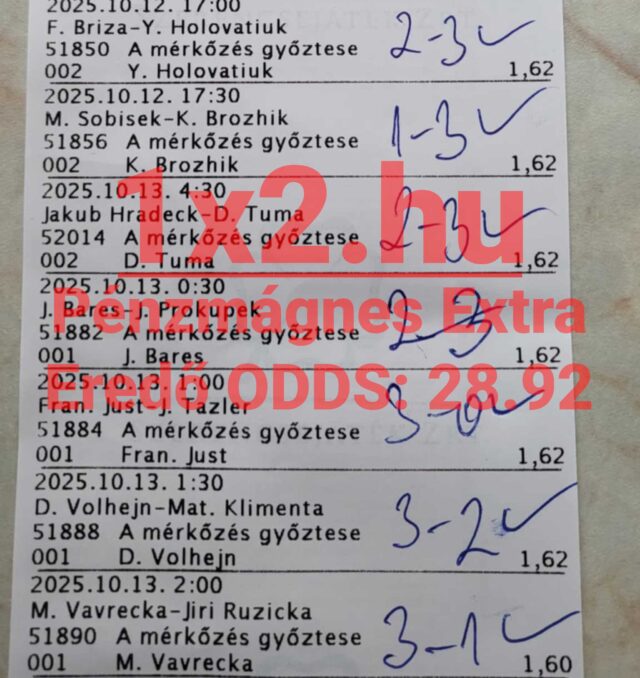 2025.10.12. 17:00
F. Briza-Y. Holovatiuk
51850 A mérkőzés győztese 2-3 ✓
002 Y. Holovatiuk 1,62
2025.10.12. 17:30
M. Sobisek-K. Brozhik
51856 A mérkőzés győztese 1-3 ✓
002 K. Brozhik 1,62
2025.10.13. 4:30
1x2.hu
Jakub Hradeck-D. Tuma
52014 A mérkőzés győztese 2-3 ✓
002 D. Tuma 1,62
2025.10.13. 0:30
Pénzmágnes Extra
J. Bares-J. Prokupek
51882 A mérkőzés győztese 2-3
001 J. Bares 1,62
2025.10.13. 1:00
Eredő ODDS: 28.92
Fran. Just-J. Tazler
51884 A mérkőzés győztese 3-0 ✓
001 Fran. Just 1,62
2025.10.13. 1:30
D. Volhejn-Mat. Klimenta
51888 A mérkőzés győztese 3-2 ✓
001 D. Volhejn 1,62
2025.10.13. 2:00
M. Vavrecka-Jiri Ruzicka
51890 A mérkőzés győztese 3-1 ✓
001 M. Vavrecka 1,60